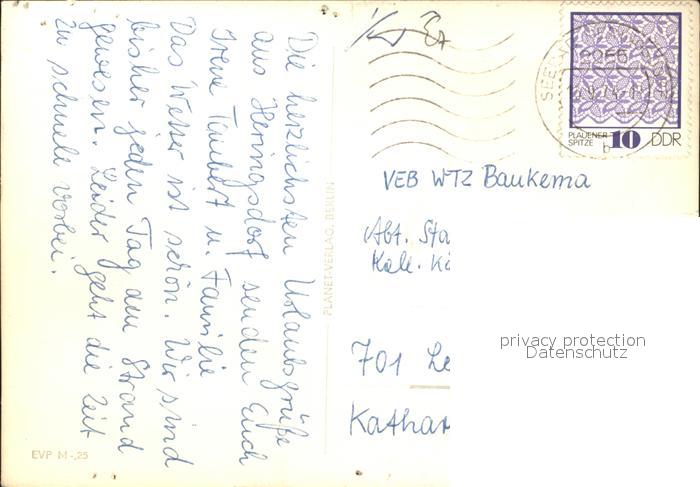 Die herzlichsten Urlaubsgrüße
aus Heringsdorf senden Euch
Irene Taubert u. Familie
Das Wetter ist schön. Wir sind
bisher jeden Tag am Strand
gewesen. Leider geht die Zeit
zu schnell vorbei.
EVP M -,25
PLANET-VERLAG, BERLIN
PLAUENER
SPITZE
10 DDR
b
VEB WTZ Baukema
Abt. Sta
Koll. Kö
701 Le
Kathar
privacy protection
Datenschutz